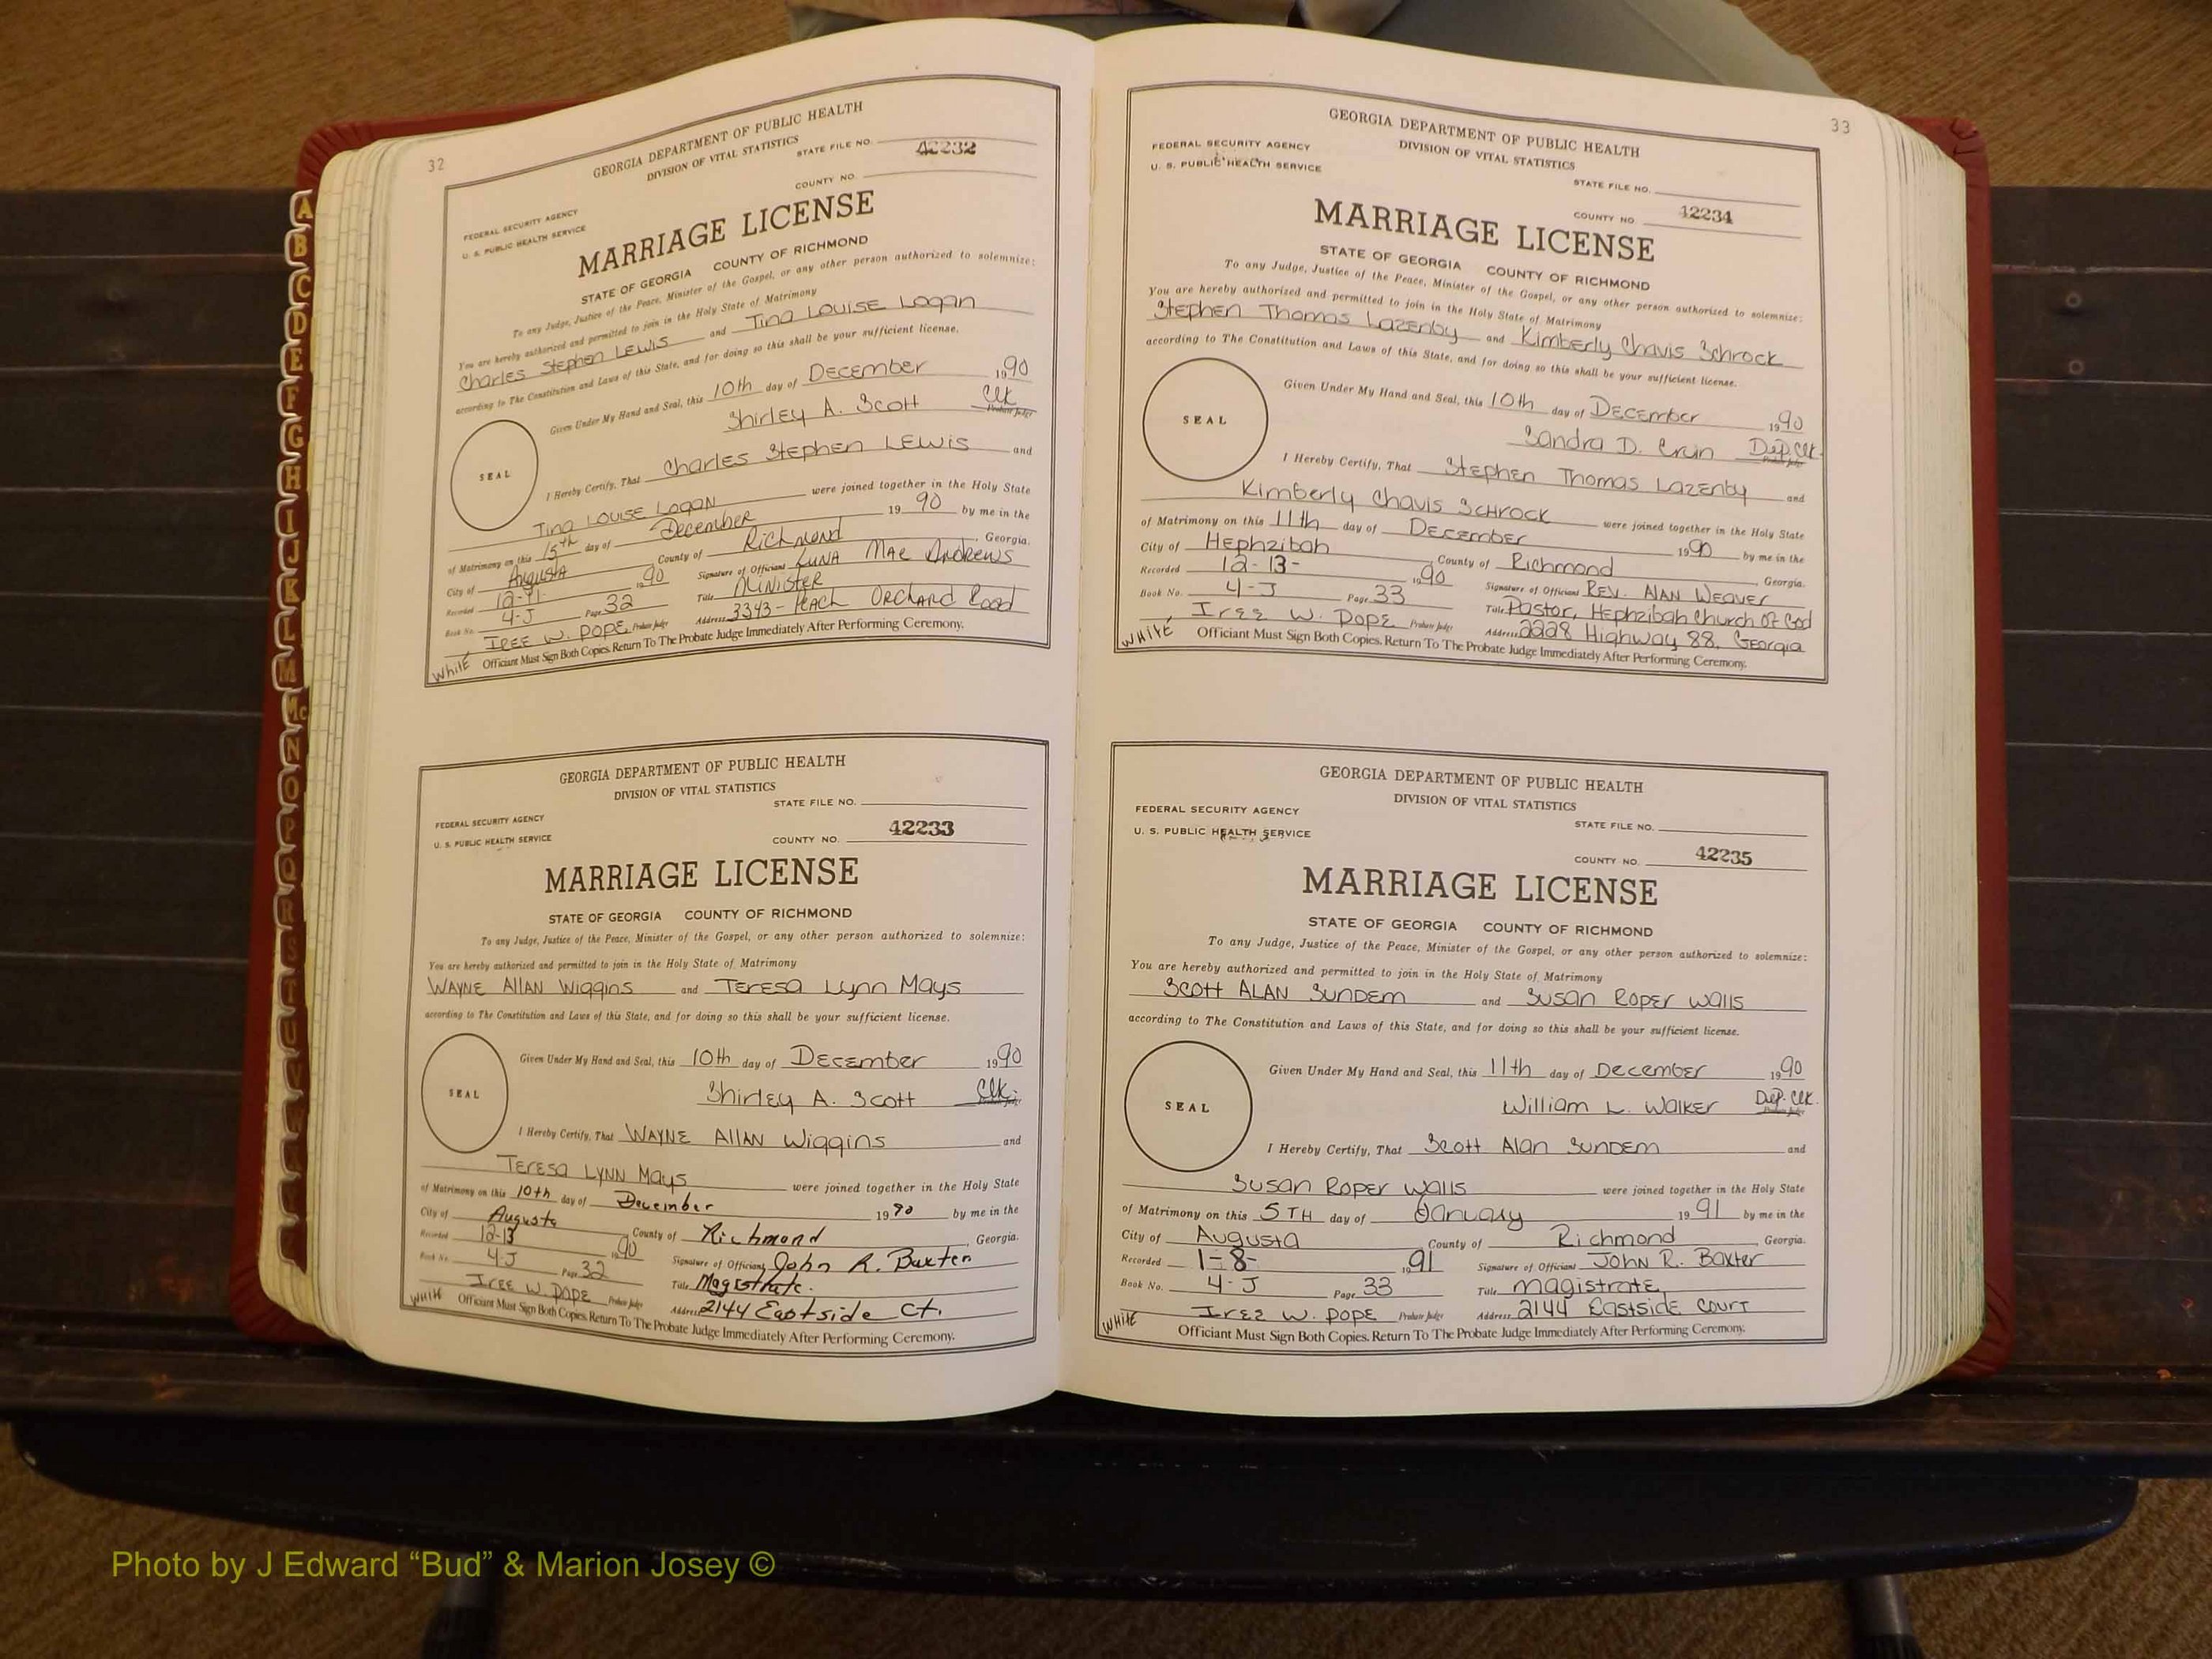 32
GEORGIA DEPARTMENT OF PUBLIC HEALTH
DIVISION OF VITAL STATISTICS
STATE FILE NO. 42232
COUNTY NO.
FEDERAL SECURITY AGENCY
U. S. PUBLIC HEALTH SERVICE
MARRIAGE LICENSE
STATE OF GEORGIA COUNTY OF RICHMOND
To any Judge, Justice of the Peace, Minister of the Gospel, or any other person authorized to solemnize:
You are hereby authorized and permitted to join in the Holy State of Matrimony
Charles Stephen Lewis and Tina Louise Logan
according to The Constitution and Laws of this State, and for doing so this shall be your sufficient license.
Given Under My Hand and Seal, this 10th day of December 1990
Shirley A. Scott Clk
Probate Judge
SEAL
I Hereby Certify, That Charles Stephen Lewis and
Tina Louise Logan were joined together in the Holy State
of Matrimony on this 15th day of December 19 90 by me in the
City of Augusta County of Richmond, Georgia.
Recorded 1990 Signature of Officiant Luna Mae Andrews
Book No. 4-J Page 32 Title Minister
Iree W. Pope Probate Judge Address 3343 - Peach Orchard Road
White Officiant Must Sign Both Copies. Return To The Probate Judge Immediately After Performing Ceremony.
GEORGIA DEPARTMENT OF PUBLIC HEALTH
DIVISION OF VITAL STATISTICS
STATE FILE NO.
FEDERAL SECURITY AGENCY
U. S. PUBLIC HEALTH SERVICE
COUNTY NO. 42233
MARRIAGE LICENSE
STATE OF GEORGIA COUNTY OF RICHMOND
To any Judge, Justice of the Peace, Minister of the Gospel, or any other person authorized to solemnize:
You are hereby authorized and permitted to join in the Holy State of Matrimony
Wayne Allan Wiggins and Teresa Lynn Mays
according to The Constitution and Laws of this State, and for doing so this shall be your sufficient license.
Given Under My Hand and Seal, this 10th day of December 1990
Shirley A. Scott Clk.
Probate Judge
SEAL
I Hereby Certify, That Wayne Allan Wiggins and
Teresa Lynn Mays were joined together in the Holy State
of Matrimony on this 10th day of December 1990 by me in the
City of Augusta County of Richmond, Georgia.
Recorded 12-13 1990 Signature of Officiant John R. Baxter
Book No. 4-J Page 32 Title Magistrate.
Iree W. Pope Probate Judge Address 2144 Eastside Ct.
White Officiant Must Sign Both Copies. Return To The Probate Judge Immediately After Performing Ceremony.
33
GEORGIA DEPARTMENT OF PUBLIC HEALTH
DIVISION OF VITAL STATISTICS
FEDERAL SECURITY AGENCY
U. S. PUBLIC HEALTH SERVICE
STATE FILE NO.
COUNTY NO 42234
MARRIAGE LICENSE
STATE OF GEORGIA COUNTY OF RICHMOND
To any Judge, Justice of the Peace, Minister of the Gospel, or any other person authorized to solemnize:
You are hereby authorized and permitted to join in the Holy State of Matrimony
Stephen Thomas Lazenby and Kimberly Chavis Schrock
according to The Constitution and Laws of this State, and for doing so this shall be your sufficient license.
Given Under My Hand and Seal, this 10th day of December 1990
Sandra D. Dep. Clk.
Probate Judge
SEAL
I Hereby Certify, That Stephen Thomas Lazenby and
Kimberly Chavis Schrock were joined together in the Holy State
of Matrimony on this 11th day of December 1990 by me in the
City of Hephzibah County of Richmond, Georgia.
Recorded 12-13- 1990 Signature of Officiant Rev. Alan Weaver
Book No. 4-J Page 33 Title Pastor, Hephzibah Church of God
Iree W. Pope Probate Judge Address 2228 Highway 88, Georgia
White Officiant Must Sign Both Copies. Return To The Probate Judge Immediately After Performing Ceremony.
GEORGIA DEPARTMENT OF PUBLIC HEALTH
DIVISION OF VITAL STATISTICS
FEDERAL SECURITY AGENCY
U. S. PUBLIC HEALTH SERVICE
STATE FILE NO.
COUNTY NO. 42235
MARRIAGE LICENSE
STATE OF GEORGIA COUNTY OF RICHMOND
To any Judge, Justice of the Peace, Minister of the Gospel, or any other person authorized to solemnize:
You are hereby authorized and permitted to join in the Holy State of Matrimony
Scott Alan Sundem and Susan Roper Walls
according to The Constitution and Laws of this State, and for doing so this shall be your sufficient license.
Given Under My Hand and Seal, this 11th day of December 1990
William L. Walker Dep. Clk.
Probate Judge
SEAL
I Hereby Certify, That Scott Alan Sundem and
Susan Roper Walls were joined together in the Holy State
of Matrimony on this 5TH day of January 19 91 by me in the
City of Augusta County of Richmond Georgia.
Recorded 1-8- 1991 Signature of Officiant John R. Baxter
Book No. 4-J Page 33 Title Magistrate
Iree W. Pope Probate Judge Address 2144 Eastside Court
White Officiant Must Sign Both Copies. Return To The Probate Judge Immediately After Performing Ceremony.
A
B
C
D
E
F
G
H
I
J
K
L
M
Mc
N
O
P
Q
R
S
T
U
V
Photo by J Edward “Bud” & Marion Josey ©